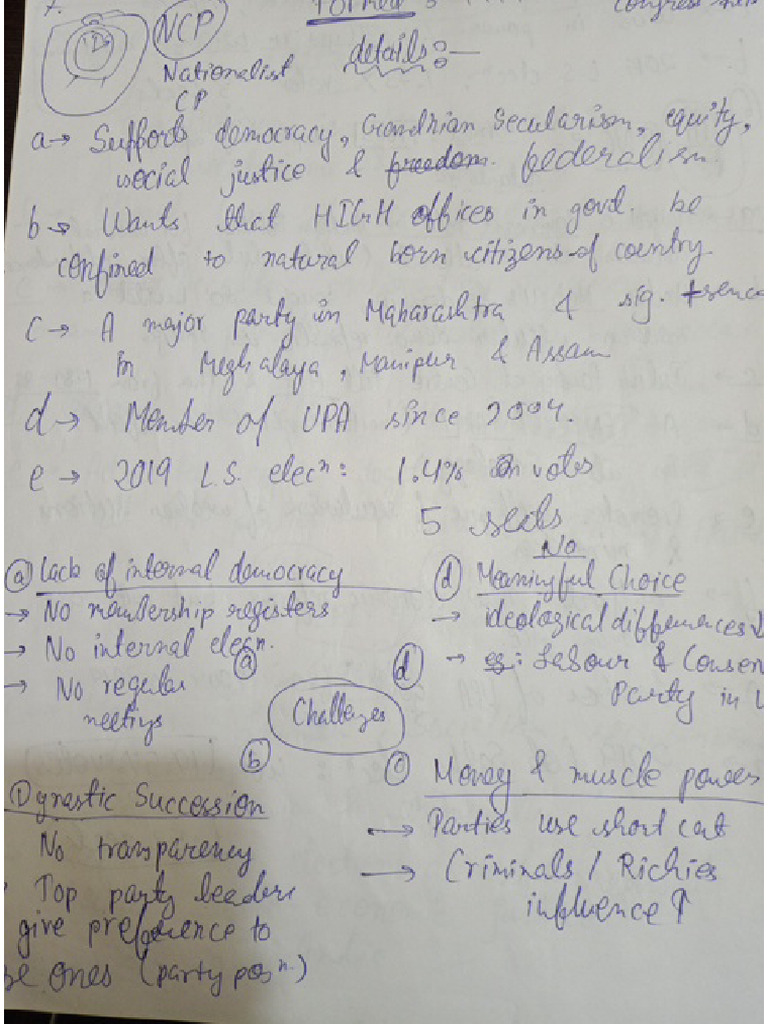 7.
NCP
Formed
Nationalist
CP
details:—
a → Supports democracy, Gandhian Secularism, equity,
social justice & freedom. federalism
b → Wants that HIGH offices in govt. be
confined to natural born citizens of country.
c → A major party in Maharashtra & sig.
in Meghalaya, Manipur & Assam
d → Member of UPA since 2004.
e → 2019 L.S. elecⁿ: 1.4% votes
5 seats
(a) Lack of internal democracy
→ No membership registers
→ No internal elecⁿ.
→ No regular
meetings
No
(d) Meaningful Choice
→ ideological differences ↓
→ eg: Labour & Conser
Party in U
(a)
(d)
Challenges
(b)
Dynastic Succession
No transparency
Top party leaders
give preference to
ones (party posⁿ.)
(c) Money & muscle power
→ Parties use short cut
→ Criminals / Richies
influence ↑